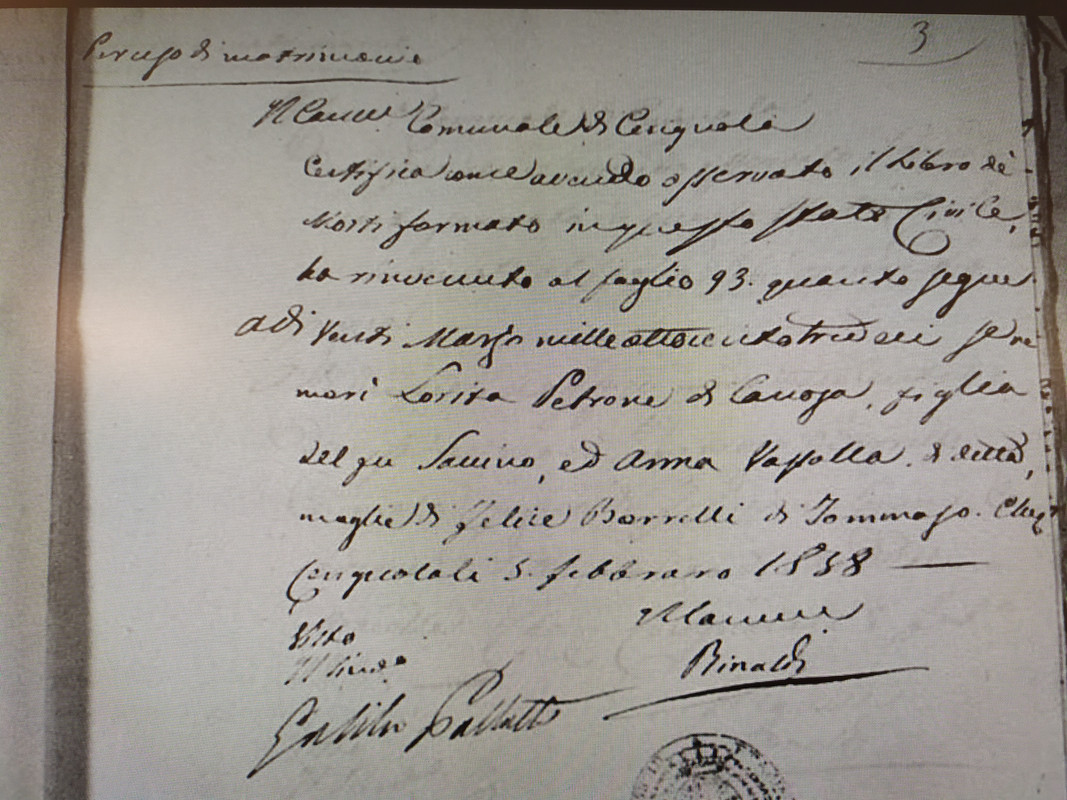 3
Per uso di matrimonio
Il Canc.e Comunale di Cerignola
Certifica come avendo osservato il Libro de'
Morti formato in questo Stato Civile,
ha rinvenuto al foglio 93. quanto segue
Adi Venti Marzo mille ottocento tredeci se ne
morì Petrone di Canosa, figlia
del fu Savino, ed Anna Vassalla di detta,
moglie di Felice Borrelli di Tommaso.
Cerignola li 5. febbraro 1838
Visto
Il Sind.o
Rinaldi